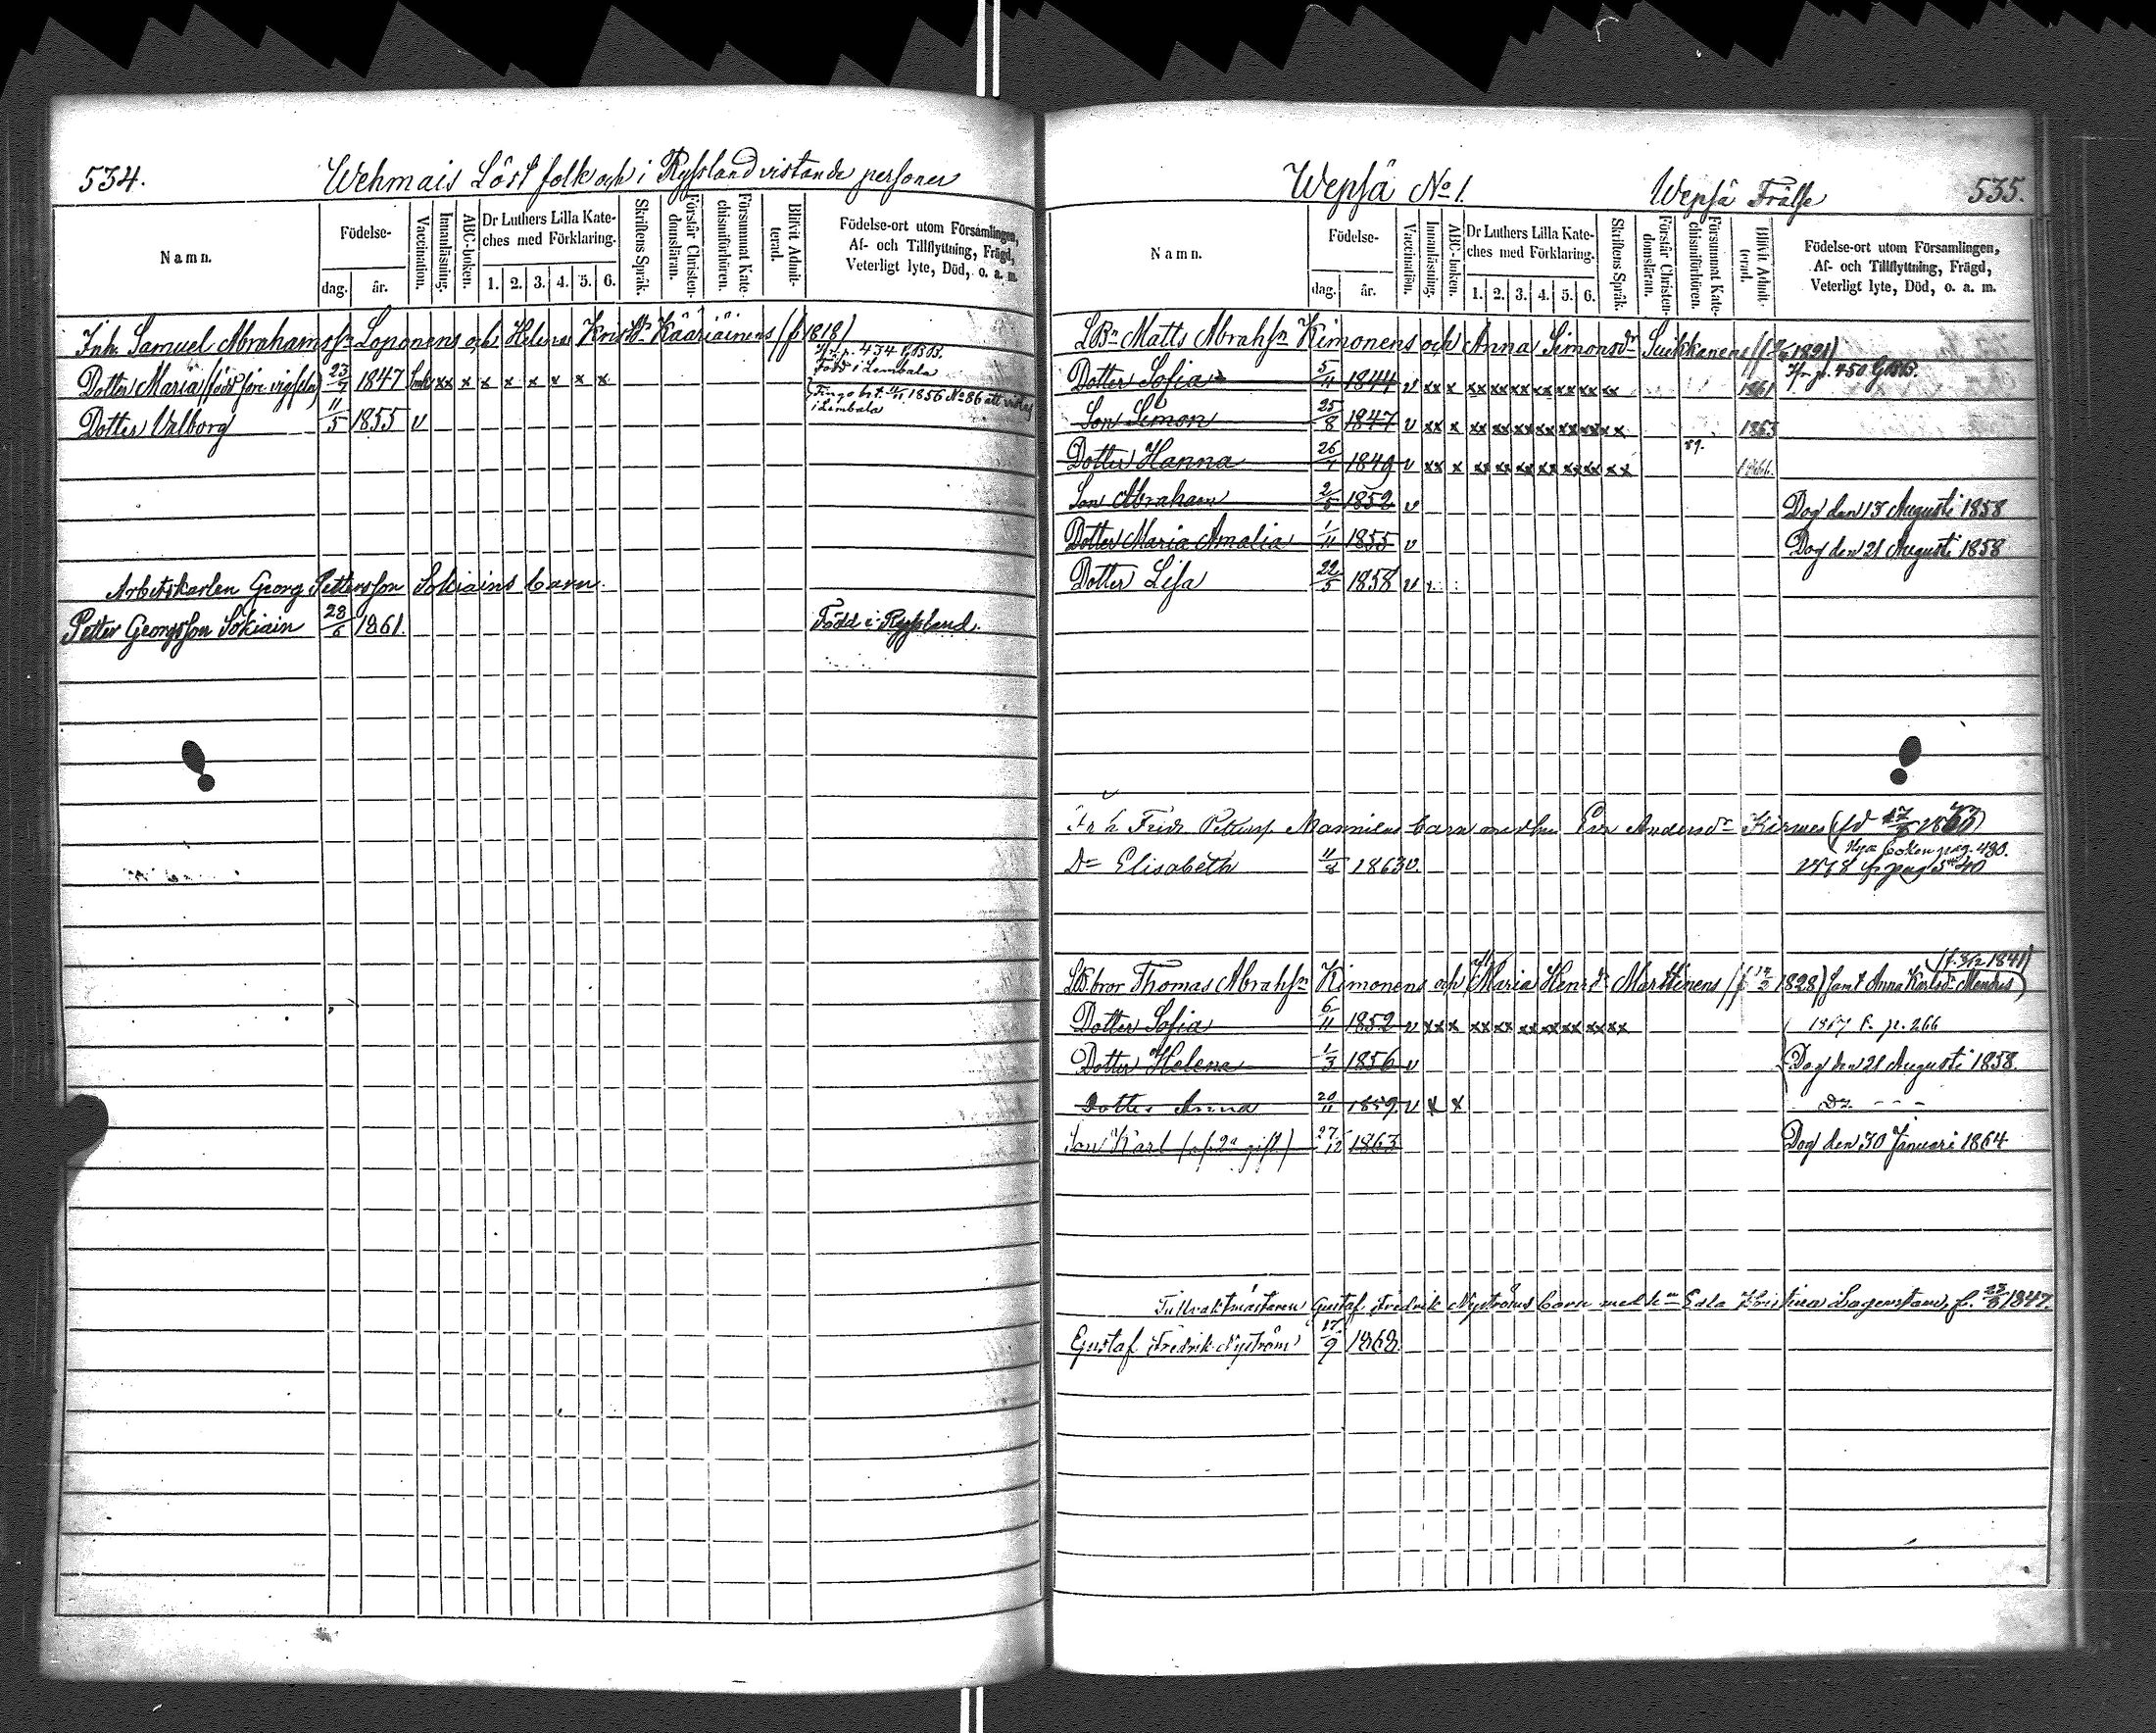 534.
Wehmais Löst folk och i Ryssland vistande personer
Namn.
Födelse-
dag.
år.
Vaccination.
Innanläsning.
ABC-boken.
Dr Luthers Lilla Kate-
ches med Förklaring.
1. 2. 3. 4. 5. 6.
Skriftens Språk.
Förstår Christen-
domsläran.
Försummat Kate-
chismiförhören.
Blifvit Admit-
terad.
Födelse-ort utom Församlingen,
Af- och Tillflyttning, Frägd,
Veterligt lyte, Död, o. a. m.
Inh. Samuel Abrahamssn Loponens och Helena Kristdr Kääriäinens (f 1818)
p. 434
Född i Lembala
Dotter Maria (född före vigseln) 23/7 1847 xx x x x x x x
1856 No 86 att
i Lembala
Dotter Valborg 11/5 1855 v
Arbetskarlen Georg Pettersson Sokiains barn.
Petter Georgsson Sokiain 28/6 1861. Född i Ryssland.
535.
Wepsä No 1.
Wepsä Frälse
Namn.
Födelse-
dag.
år.
Vaccination.
Innanläsning.
ABC-boken.
Dr Luthers Lilla Kate-
ches med Förklaring.
1. 2. 3. 4. 5. 6.
Skriftens Språk.
Förstår Christen-
domsläran.
Försummat Kate-
chismiförhören.
Blifvit Admit-
terad.
Födelse-ort utom Församlingen,
Af- och Tillflyttning, Frägd,
Veterligt lyte, Död, o. a. m.
LBn Matts Abrahsn Kimonens och Anna Simonsdr Suikkanens 1821)
p. 450
Dotter Sofia 5/11 1844 v xx x xx xx xx xx xx xx xx 1861
Son Simon 25/8 1847 v xx x xx xx xx xx xx xx xx 1863
Dotter Hanna 26/7 1849 v xx x xx xx xx xx xx xx xx 1866.
Son Abraham 2/5 1852 v Dog den 13 Augusti 1858
Dotter Maria Amalia 1/11 1855 v Dog den 21 Augusti 1858
Dotter Lisa 22/5 1858 v
Inh Fredr Petterss. Manniens barn med hu Eva Andersdr Kirmes
Nya boken pag. 490.
Dr Elisabeth 11/8 1863 v. pag 540
(f. 3/12 1841)
LB. bror Thomas Abrahsn Kimonens och Maria Henrdr Marttinens 1828) samt Anna Karlsdr
Dotter Sofia 6/11 1852 v xx x xx xx xx xx xx xx xx 1867 p. 266
Dotter Helena 1/3 1856 v Dog den 21 Augusti 1858.
Dotter Anna 20/11 1859 v x x Do. - - -
Son Karl (af 2a gift.) 27/12 1863 Dog den 30 Januari 1864
Tullvaktmästaren Gustaf Fredrik Nyströms barn med hn Edla Kristina Lagerstam, f. 23/3 1847.
Gustaf Fredrik Nyström 17/9 1868.